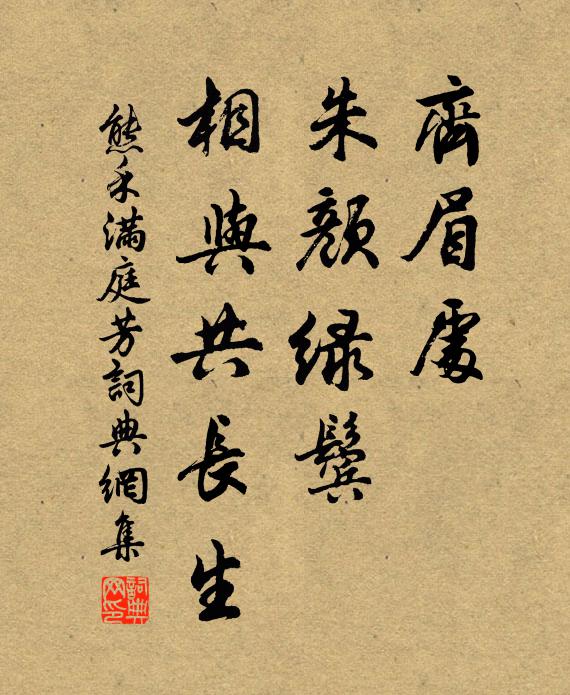 齊眉處
朱顏緑鬢
相與共長生
熊禾滿庭芳詞典網集
詞典网印